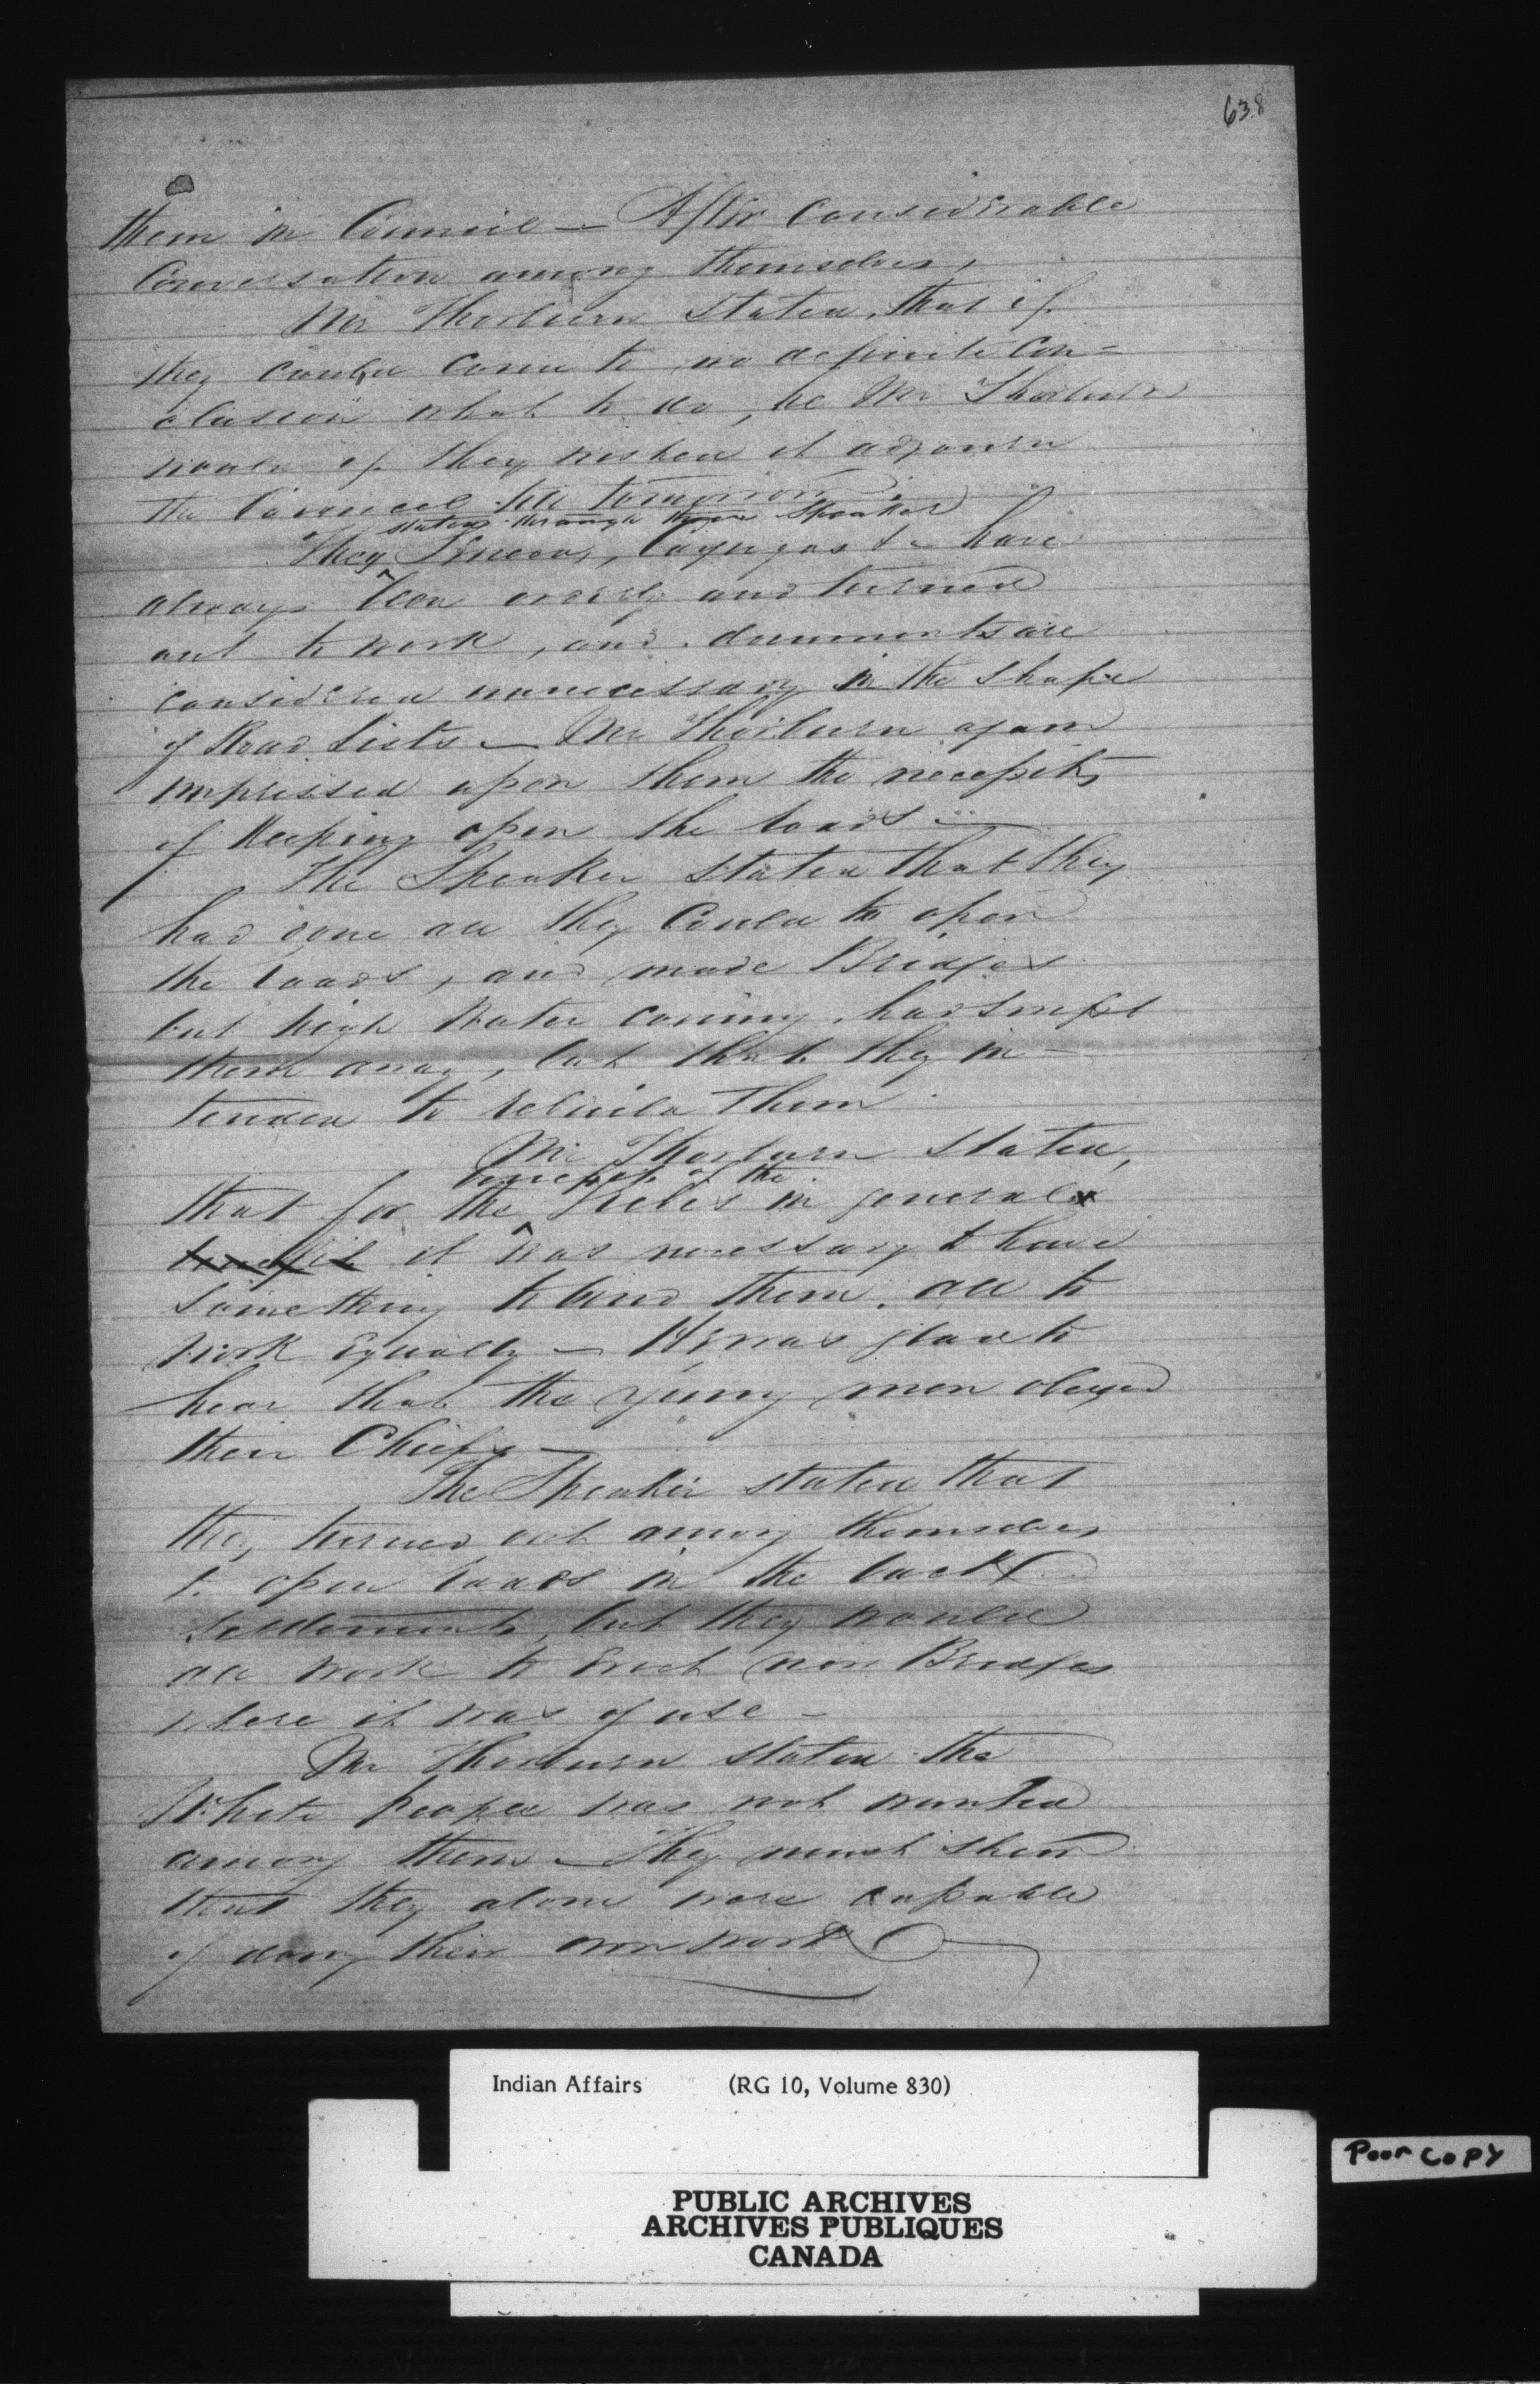 638
them in Council — After considerable
Conversation among themselves,
Mr Thorburn stated, that if
they could come to no definite Con=
clusion what to do, he Mr Thorburn
would if they wished it adjourn
the Council till tomorrow.
stated through their Speaker
They Senecas, Cayugas & have
always been orderly and turned
out to work, and documents are
considered unnecessary in the shape
of Road Lists — Mr Thorburn again
impressed upon them the necessity
of keeping open the roads —
The Speaker stated that they
had done all they could to open
the roads, and made Bridges
but high water coming, had swept
them away, but that they in-
tended to rebuild them
Mr Thorburn stated,
benefit of the
that for the Tribes in general
benefit it was necessary to have
something to bind them, all to
work Equally — He was glad to
hear that the young men obeyed
their Chiefs —
The Speaker stated that
they turned out among themselves
to open roads in the back
settlements, but they would
all work to Erect new Bridges
where it was of use —
Mr Thorburn stated the
White people was not wanted
among them — They must shew
that they alone were capable
of doing their own work
Indian Affairs (RG 10, Volume 830)
PUBLIC ARCHIVES
ARCHIVES PUBLIQUES
CANADA
Poor Copy